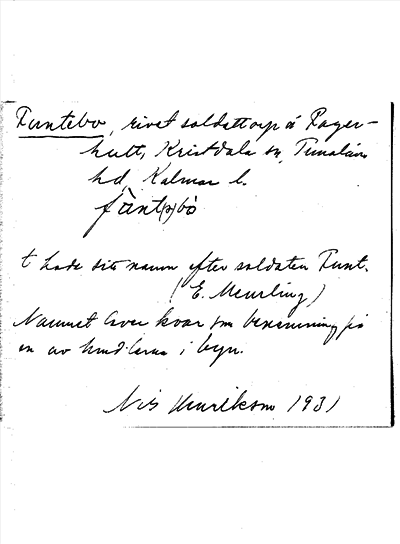 Funtebo, rivet soldattorp å Fager-
hult, Kristdala sn, Tunaläns
hd, Kalmar l.
t hade sitt namn efter soldaten Funt.
(E. Meurling)
Namnet lever kvar som benämning på
en av i byn.
Nils Henrikson 1931